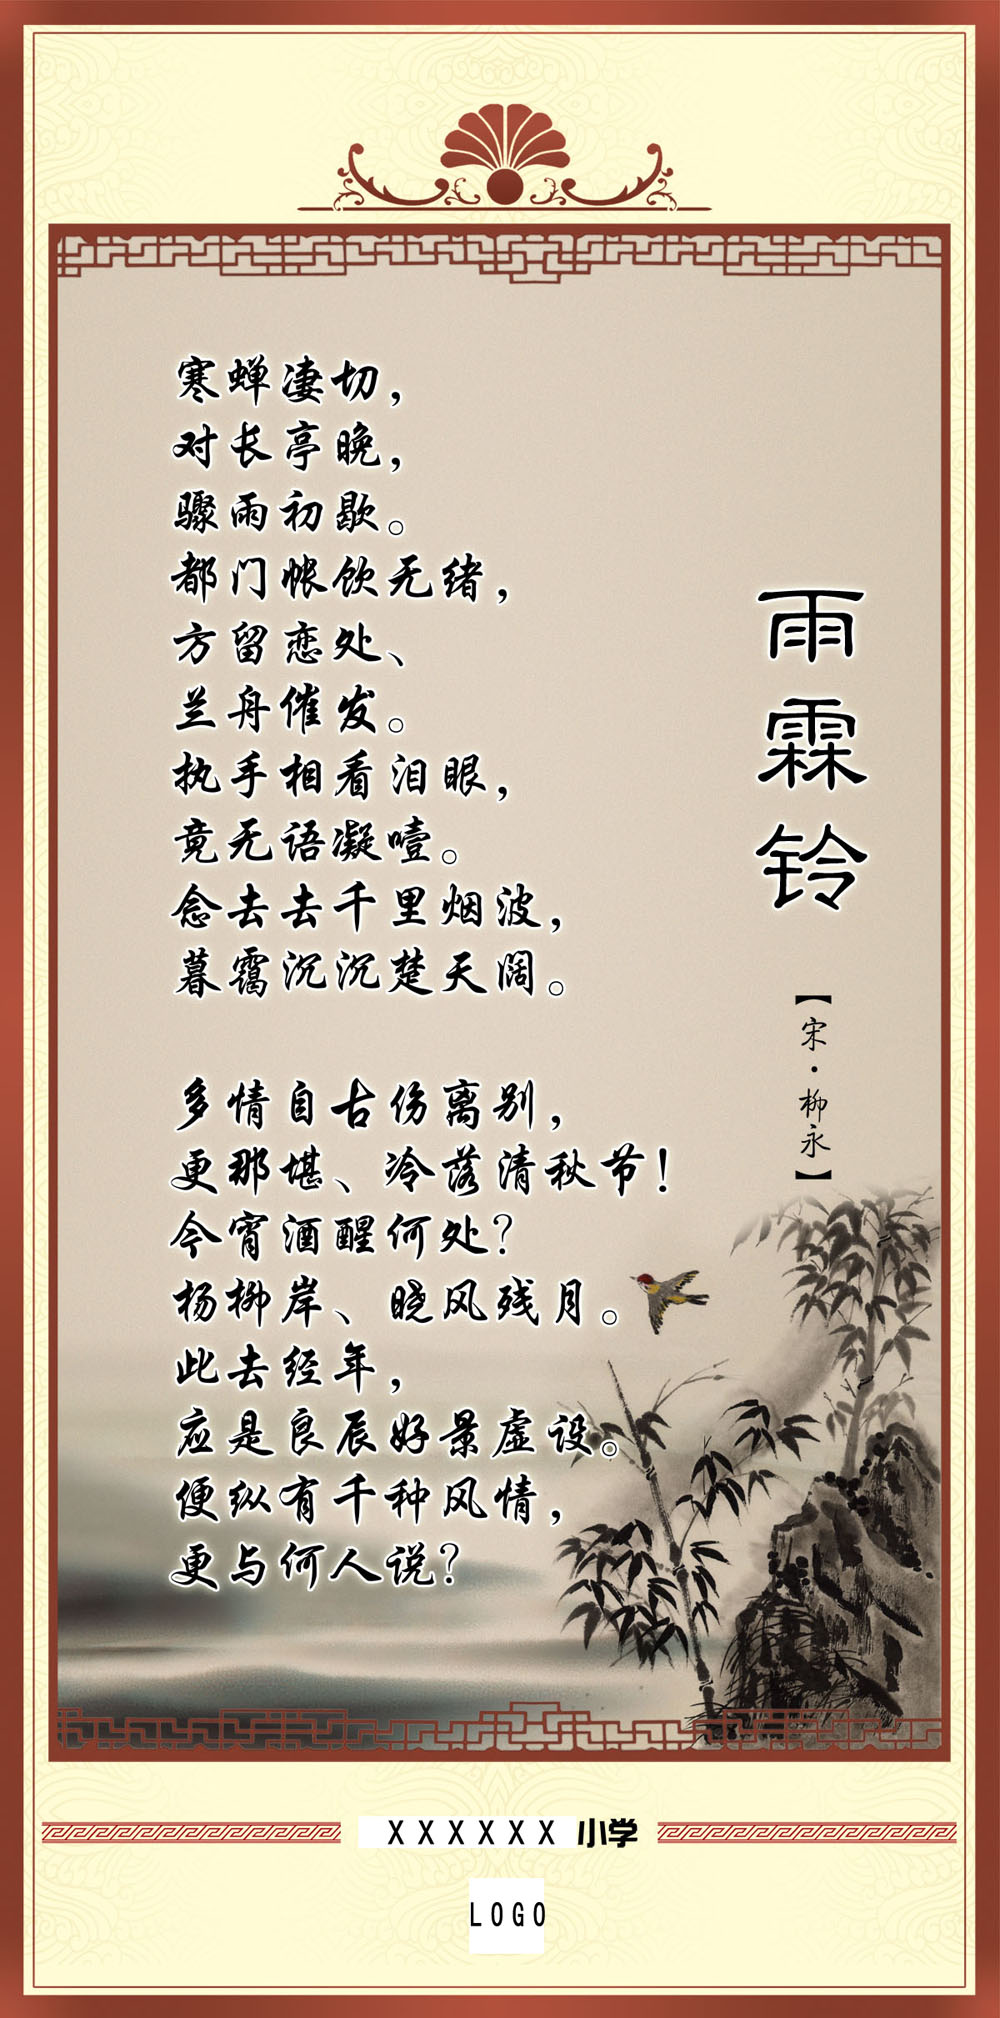 雨霖铃
【宋·柳永】
寒蝉凄切，
对长亭晚，
骤雨初歇。
都门帐饮无绪，
方留恋处、
兰舟催发。
执手相看泪眼，
竟无语凝噎。
念去去千里烟波，
暮霭沉沉楚天阔。
多情自古伤离别，
更那堪、冷落清秋节！
今宵酒醒何处？
杨柳岸、晓风残月。
此去经年，
应是良辰好景虚设。
便纵有千种风情，
更与何人说？
XXXXXX 小学
LOGO